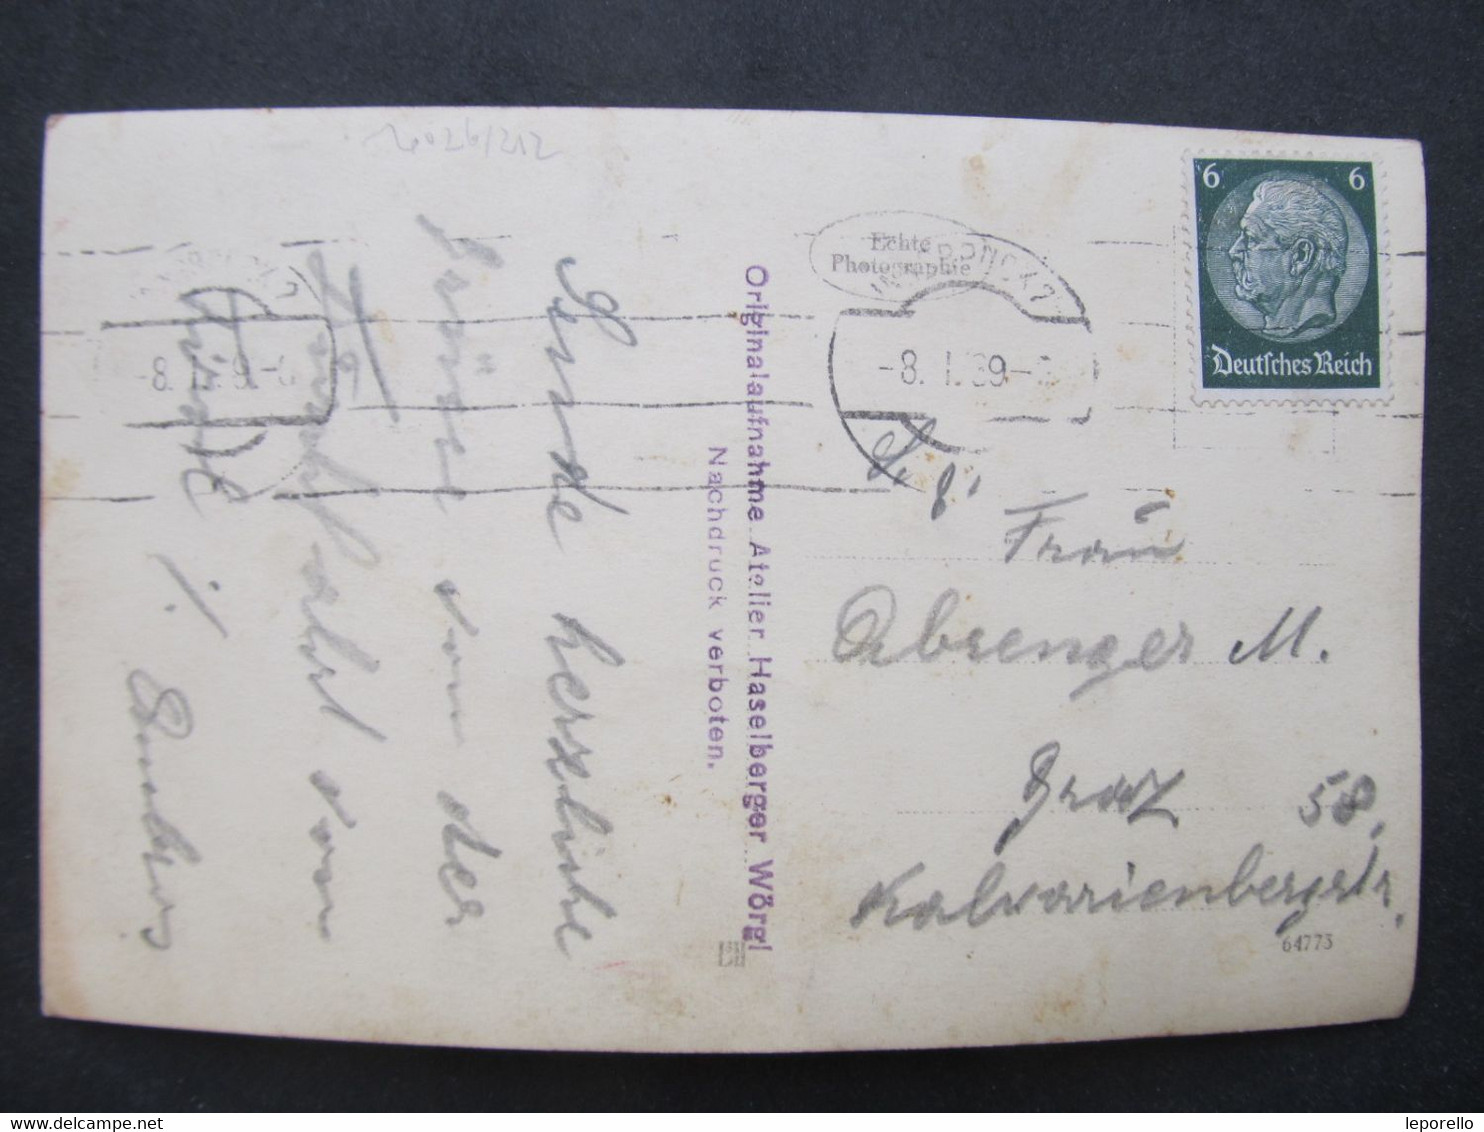 6026/212
6 6
Deutsches Reich
Echte
Photographie
INNSBRUCK 7
-8. I. 39-
-8. I. 39-
Originalaufnahme Atelier Haselberger Wörgl
Nachdruck verboten.
Sende herzliche
Grüße von der
von
Frau
Abrenger M.
Graz 58.
Kalvarienbergstr.
64773
leporello